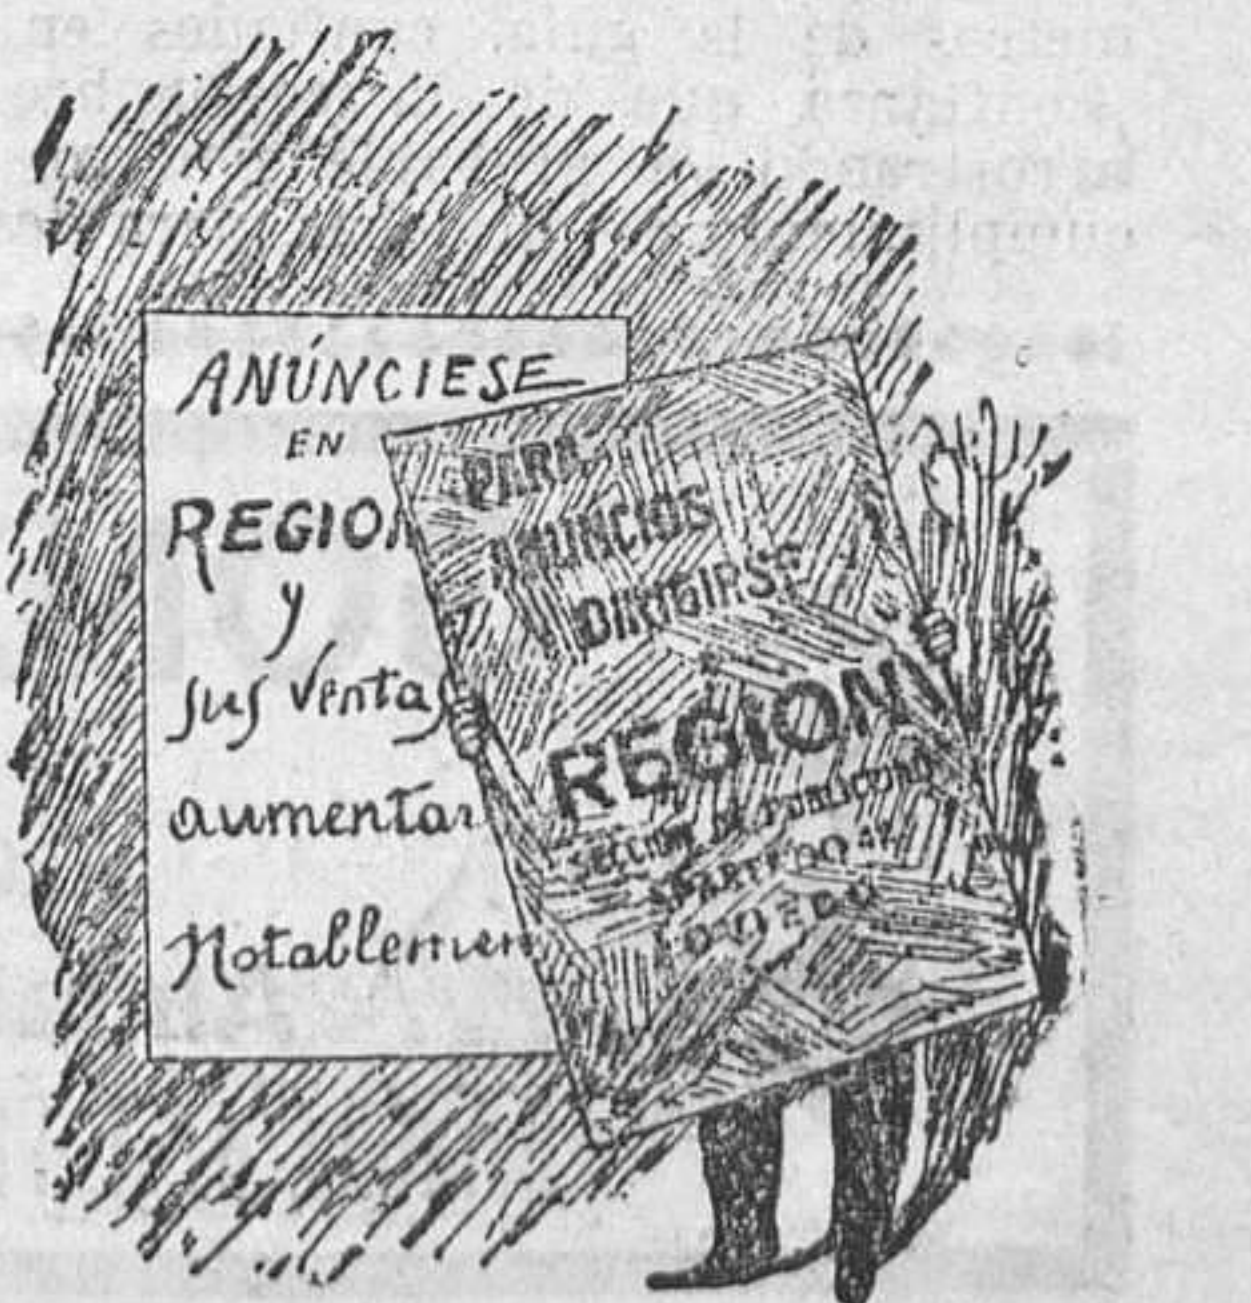 ANÚNCIESE
EN
REGION
y
sus ventas
aumentar
Notablemen
PARA
ANUNCIOS
DIRIGIRSE
REGION
SECCION DE PUBLICIDAD
APARTADO 42
OVIEDO